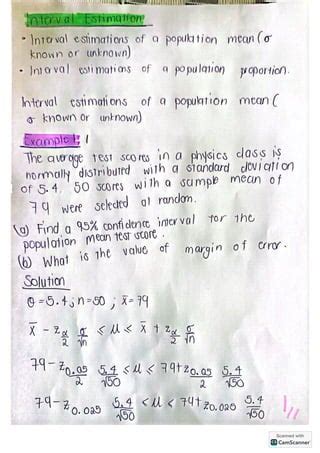 Interval Estimation
• Interval estimations of a population mean (σ
known or unknown)
• Interval estimations of a population proportion.
Interval estimations of a population mean (
σ known or unknown)
Example 1: 1
The average test scores in a physics class is
normally distributed with a standard deviation
of 5.4. 50 scores with a sample mean of
79 were selected at random.
(a) Find a 95% confidence interval for the
population mean test score.
(b) What is the value of margin of error.
Solution
σ = 5.4; n=50 ; x̄ = 79
x̄ - z α/2 σ/√n ≤ μ ≤ x̄ + z α/2 σ/√n
79 - z 0.05/2 5.4/√50 ≤ μ ≤ 79 + z 0.05/2 5.4/√50
79 - z 0.025 5.4/√50 < μ < 79 + z 0.025 5.4/√50
1/11
Scanned with
CS CamScanner